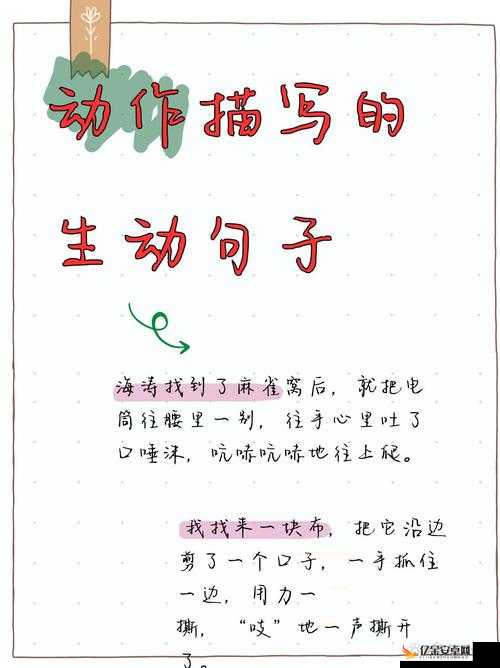 动作描写的
生动句子
海涛找到了麻雀窝后，就把电
筒往腰里一别，往手心里吐了
口唾沫，吭哧吭哧地往上爬。
我找来一块布，把它沿边
剪了一个口子，一手抓住
一边，用力一
撕，“吱”地一声撕开
了。
亿金安卓网